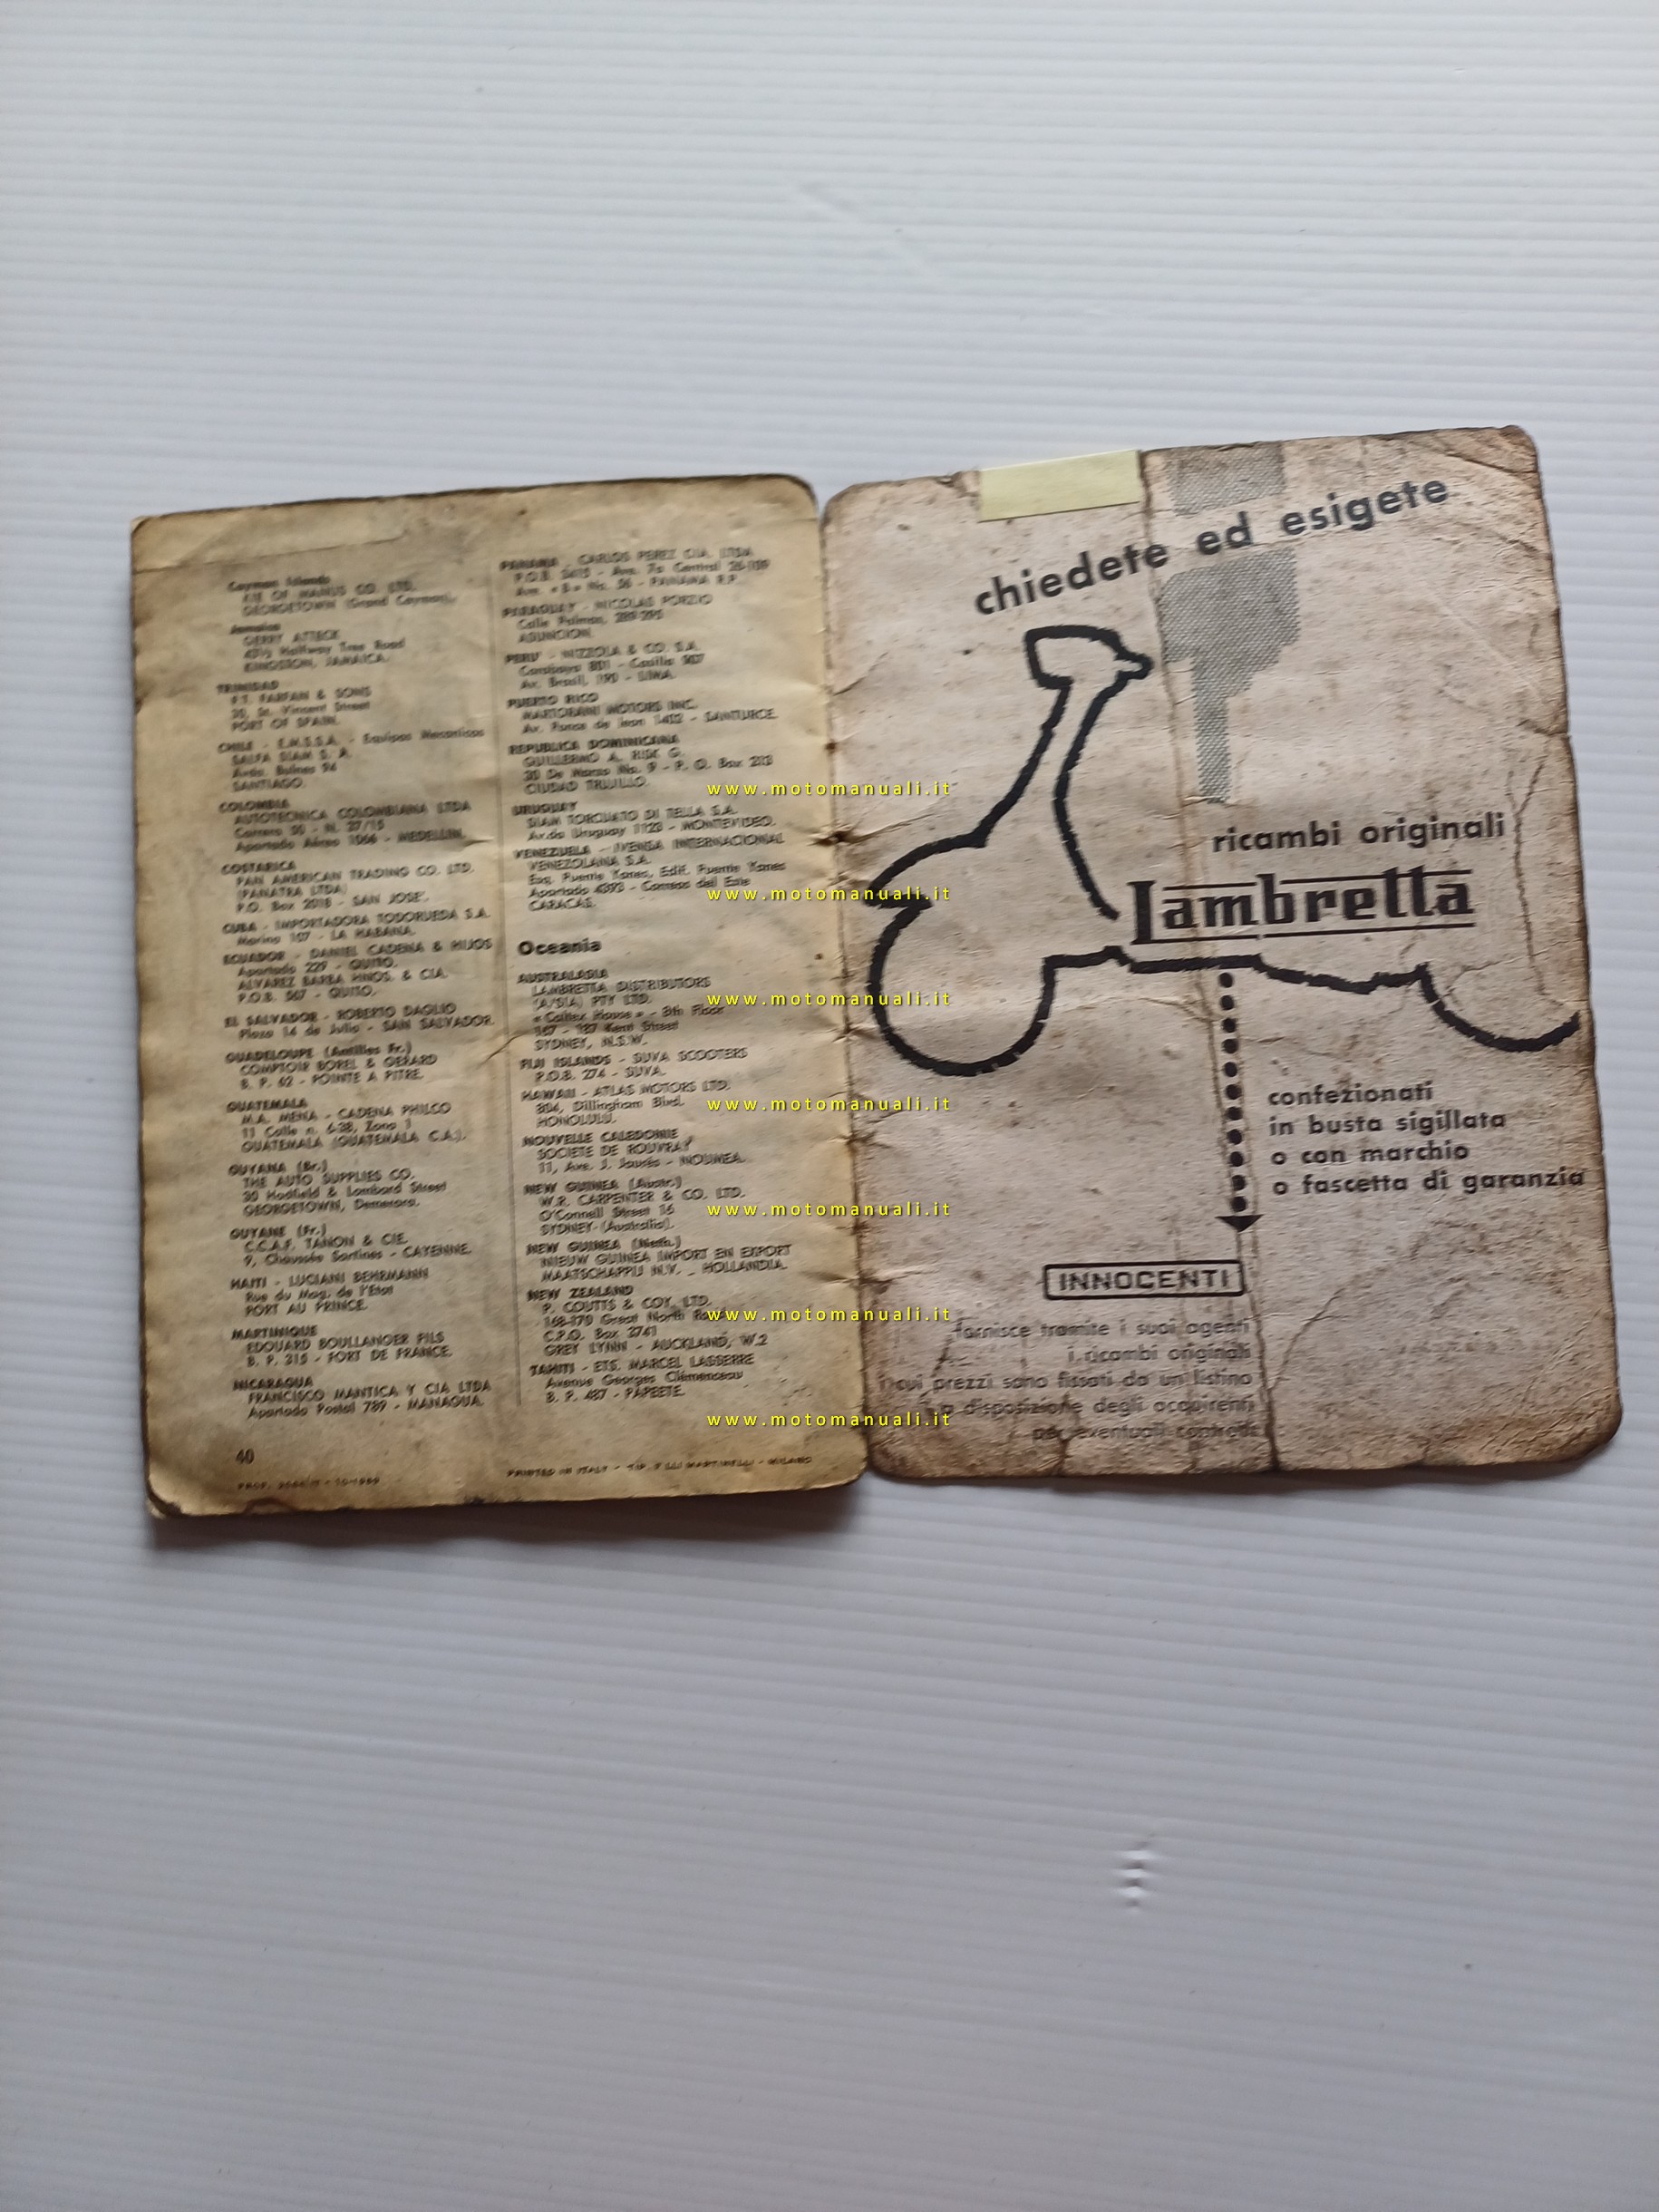 Cayman Islands
KIE OF MANUS CO. LTD.
GEORGETOWN (Grand Cayman).
Jamaica
GERRY ATTECK
Halfway Tree Road
KINGSTON, JAMAICA.
TRINIDAD
F.T. FARFAN & SONS
30, St. Vincent Street
PORT OF SPAIN.
CHILE - E.M.S.S.A. - Equipos Mecanicos
SALFA SIAM S. A.
Avda. Bulnes 94
SANTIAGO.
COLOMBIA
AUTOTECNICA COLOMBIANA LTDA
Carrera 50 - N. 37/15
Apartado Aéreo 1066 - MEDELLIN.
COSTARICA
PAN AMERICAN TRADING CO. LTD.
(PANATRA LTDA)
P.O. Box 2018 - SAN JOSE'.
CUBA - IMPORTADORA TODORUEDA S.A.
Marina 107 - LA HABANA.
ECUADOR - DANIEL CADENA & HIJOS
Apartado 229 - QUITO.
ALVAREZ BARBA HNOS. & CIA.
P.O.B. 507 - QUITO.
EL SALVADOR - ROBERTO DAGLIO
Plaza 14 de Julio - SAN SALVADOR.
GUADELOUPE (Antilles Fr.)
COMPTOIR BOREL & GERARD
B. P. 62 - POINTE A PITRE.
GUATEMALA
M.A. MENA - CADENA PHILCO
11 Calle n. 6-38, Zona 1
GUATEMALA (GUATEMALA C.A.).
GUYANA (Br.)
THE AUTO SUPPLIES CO.
30 Hadfield & Lombard Street
GEORGETOWN, Demerara.
GUYANE (Fr.)
C.C.A.F. TANON & CIE.
9, Chaussée Sartines - CAYENNE.
HAITI - LUCIANI BEHRMANN
Rue du Mag. de l'Etat
PORT AU PRINCE.
MARTINIQUE
EDOUARD BOULLANGER FILS
B. P. 315 - FORT DE FRANCE.
NICARAGUA
FRANCISCO MANTICA Y CIA LTDA
Apartado Postal 789 - MANAGUA.
40
PANAMA - CARLOS PEREZ CIA. LTDA
P.O.B. - Ave. 7a Central 26-109
Ave. « B » No. 56 - PANAMA R.P.
PARAGUAY - NICOLAS PORZIO
Calle Palmas, 289-295
ASUNCION.
PERU' - NIZZOLA & CO. S.A.
Carabaya 801 - Casilla 507
Av. Brasil, 190 - LIMA.
PUERTO RICO
MARTORANI MOTORS INC.
Av. Ponce de leon 1402 - SANTURCE.
REPUBLICA DOMINICANA
GUILLERMO A. RISK G.
30 De Marzo No. 9 - P. O. Box 213
CIUDAD TRUJILLO.
URUGUAY
SIAM TORCUATO DI TELLA S.A.
Av.da Uruguay 1123 - MONTEVIDEO.
VENEZUELA - IVENSA INTERNACIONAL
VENEZOLANA S.A.
Esq. Puente Yanes, Edif. Puente Yanes
Apartado 4393 - Correos del Este
CARACAS.
Oceania
AUSTRALASIA
LAMBRETTA DISTRIBUTORS
(A/SIA) PTY LTD.
« Caltex House » - 8th Floor
167 - 187 Kent Street
SYDNEY, N.S.W.
FIJI ISLANDS - SUVA SCOOTERS
P.O.B. 274 - SUVA.
HAWAII - ATLAS MOTORS LTD.
804, Dillingham Blvd.
HONOLULU.
NOUVELLE CALEDONIE
SOCIETE DE ROUVRAY
11, Ave. J. Jaurés - NOUMEA.
NEW GUINEA (Austr.)
W.R. CARPENTER & CO. LTD.
O'Connell Street 16
SYDNEY (Australia).
NEW GUINEA (Neth.)
NIEUW GUINEA IMPORT EN EXPORT
MAATSCHAPPIJ N.V. _ HOLLANDIA.
NEW ZEALAND
P. COUTTS & COY. LTD.
168-170 Great North Road
C.P.O. Box 2741
GREY LYNN - AUCKLAND, W.2
TAHITI - ETS. MARCEL LASSERRE
Avenue Georges Clémenceau
B. P. 487 - PAPEETE.
PRINTED IN ITALY - TIP. F.LLI MARTINELLI - MILANO
chiedete ed esigete
ricambi originali
Lambretta
confezionati
in busta sigillata
o con marchio
o fascetta di garanzia
INNOCENTI
fornisce tramite i suoi agenti
i ricambi originali
i cui prezzi sono fissati da un listino
a disposizione degli acquirenti
per eventuali controlli
www.motomanuali.it
www.motomanuali.it
www.motomanuali.it
www.motomanuali.it
www.motomanuali.it
www.motomanuali.it
www.motomanuali.it